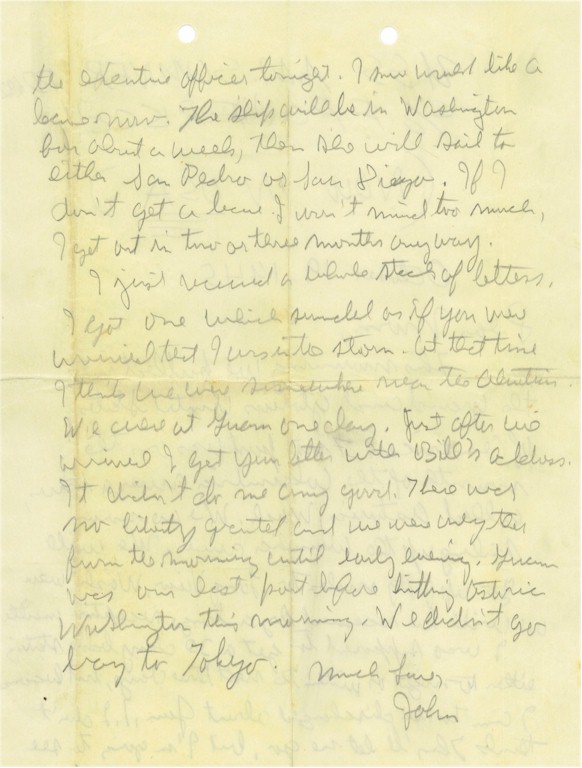 the executive officer tonight. I sure would like a
leave now. The ship will be in Washington
for about a week, then she will sail to
either San Pedro or San Diego. If I
don't get a leave I won't mind too much,
I get out in two or three months anyway.
I just received a whole stack of letters.
I got one which sounded as if you were
worried that I was in the storm. At that time
I think we were somewhere near the Aleutians.
We were at Guam one day. Just after we
arrived I got your letter with Bill's address.
It didn't do me any good. There was
no liberty granted and we were only there
from the morning until early evening. Guam
was our last port before hitting Astoria
Washington this morning. We didn't go
to Tokyo.
Much Love,
John